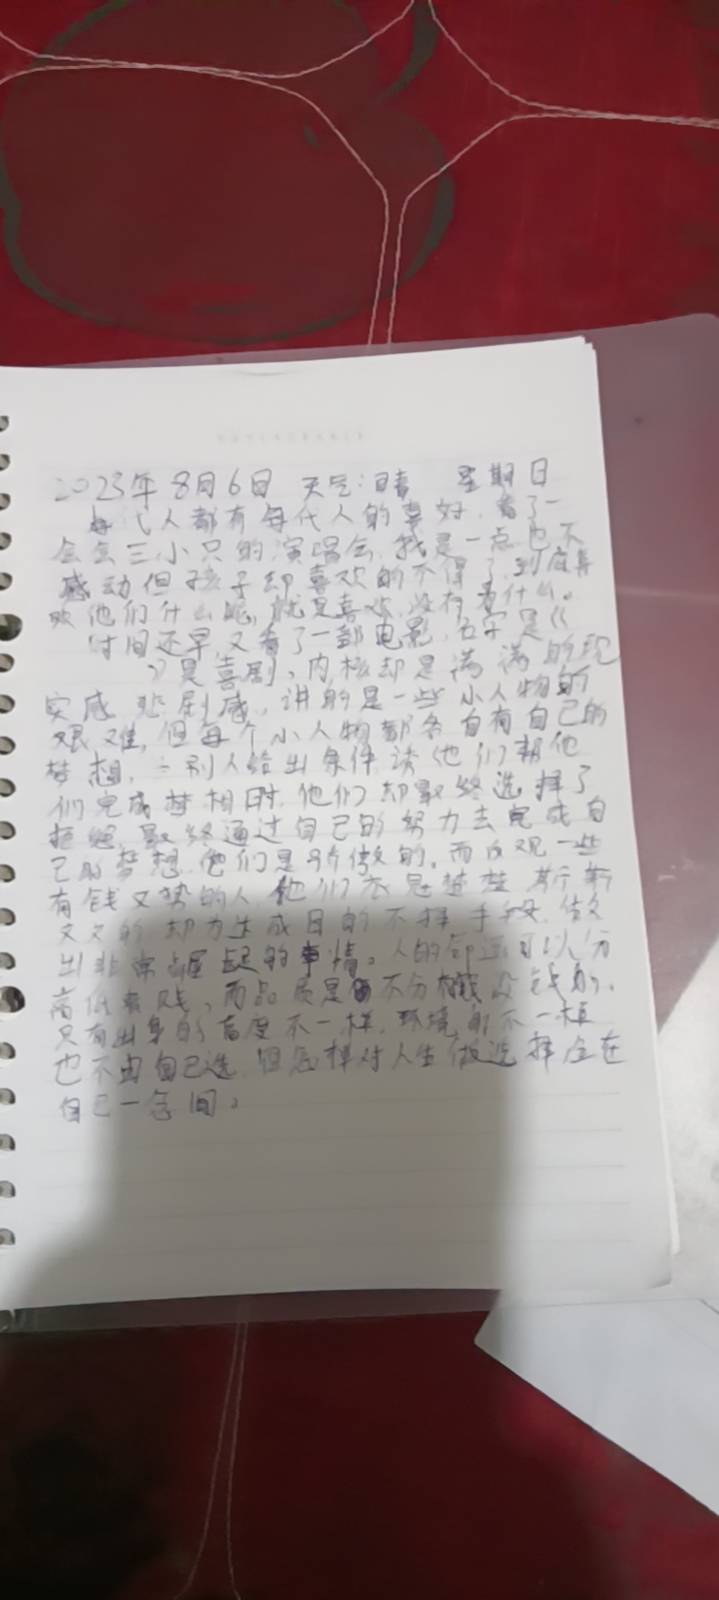 2023年8月6日 天气:晴 星期日
每代人都有每代人的喜好,看了一
会会三小只的演唱会,我是一点也不
感动但孩子却喜欢的不得了,到底喜
欢他们什么呢,就是喜欢,没有为什么。
时间还早,又看了一部电影,名字是《
》是喜剧、内核却是满满的现
实感悲剧感,讲的是一些小人物的
艰难,但每个小人物都各自有自己的
梦想,当别人给出条件,请他们帮他
们完成梦想时,他们却最终选择了
拒绝,最终通过自己的努力去完成自
己的梦想,他们是骄傲的。而反观一些
有钱又势的人,他们衣冠楚楚,斯斯
文文的,却为达成目的不择手段,做
出非常龌龊的事情。人的命运可以分
高低贵贱,而品质是不分有钱没钱的。
只有出身的高度不一样,环境的不一样
也不由自己选,但怎样对人生做选择全在
自己一念间。